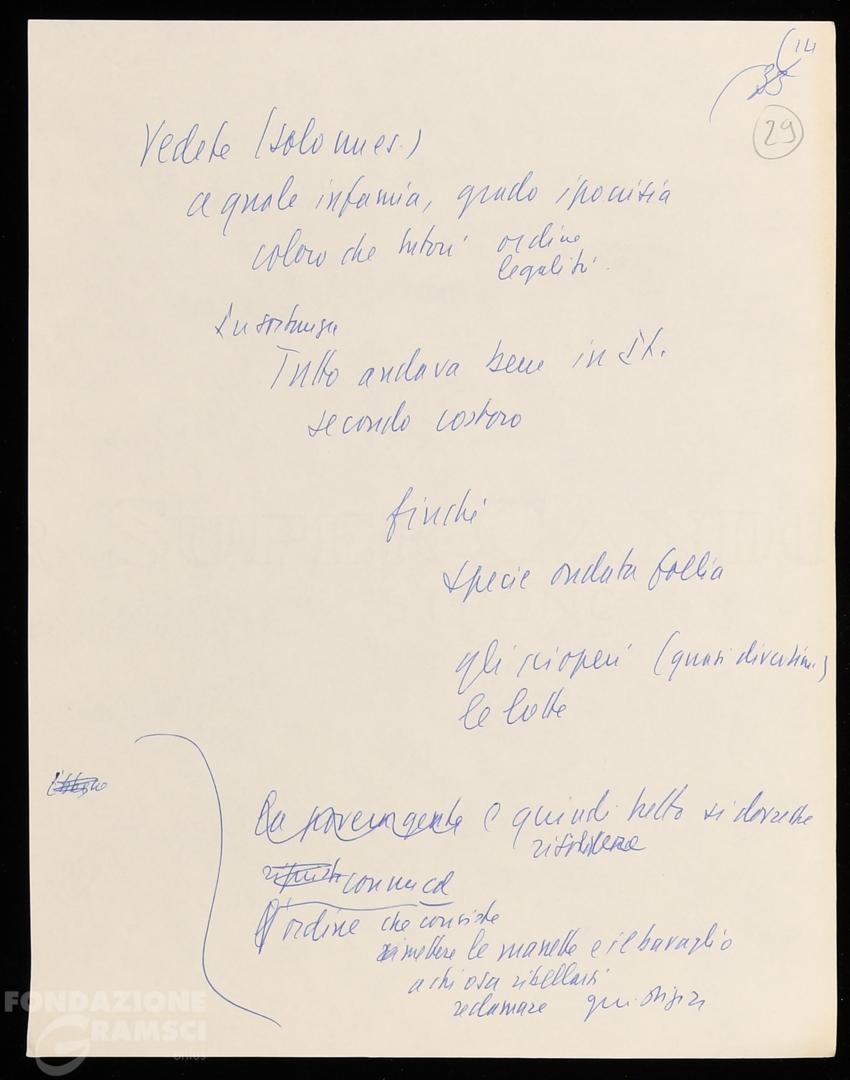 (14
35
29
Vedete (solo un es.)
a quale infamia, grado ipocrisia
coloro che tutori ordine
legalità
In sostanza
Tutto andava bene in It.
secondo costoro
finché
specie ondata follia
gli scioperi (quasi divertim.)
le lotte
la povera gente e quindi tutto si dovrebbe
risolvere
con
l'ordine che consiste
rimettere le manette e il bavaglio
a chi osa ribellarsi
reclamare giustizia
FONDAZIONE
GRAMSCI
onlus